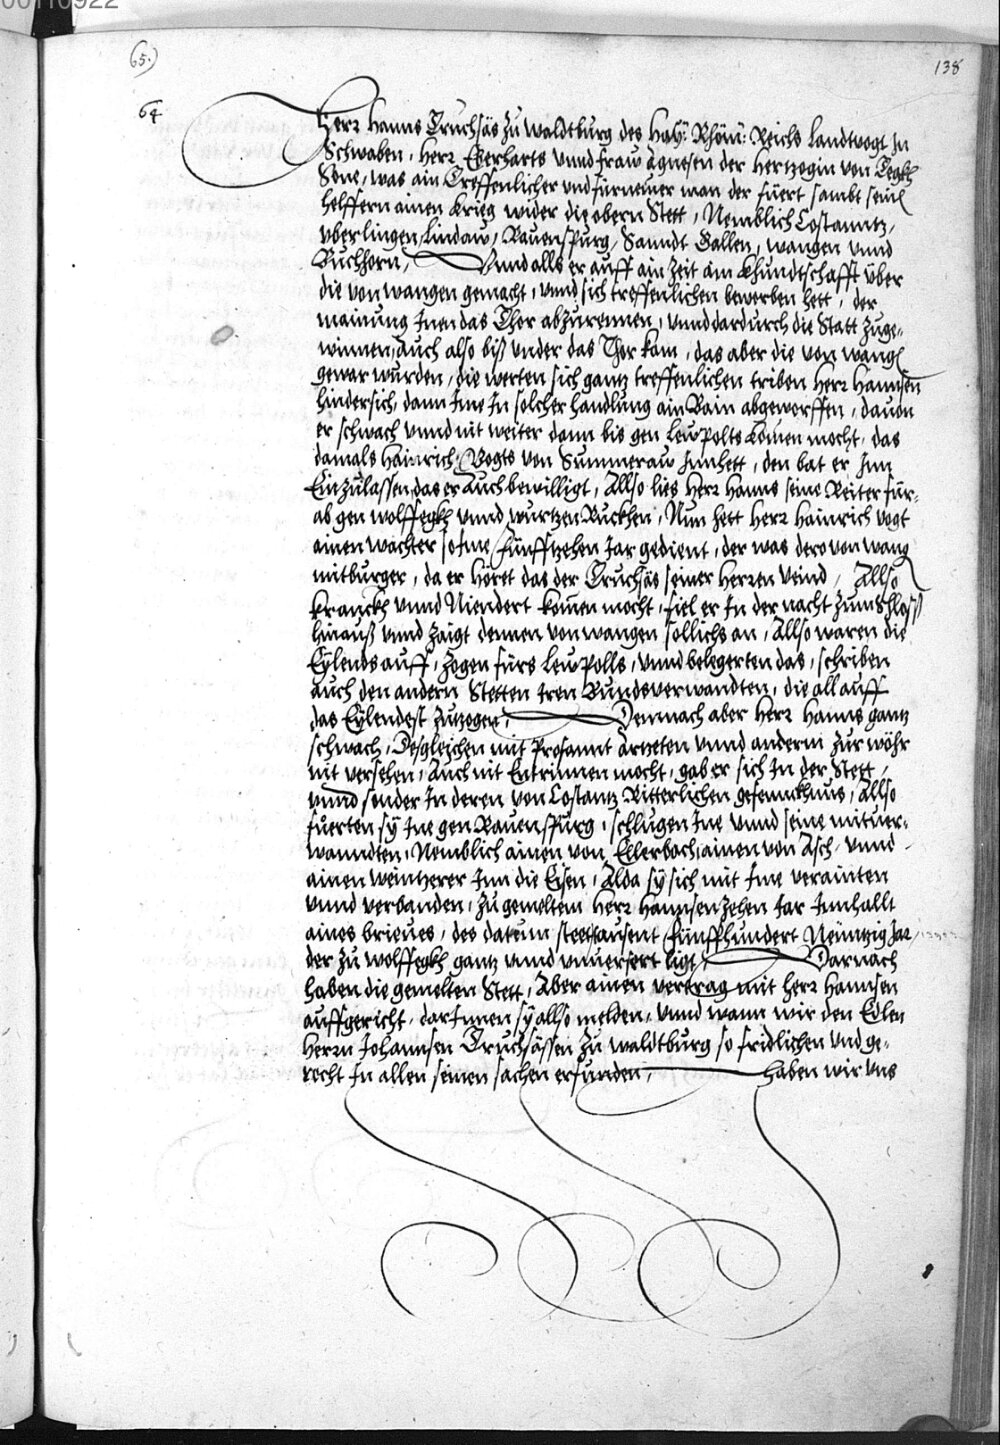 00110922
65.)
138
64
Herr Hanns Truchsäs zu Waldtburg des Hay: Rhöm: Reichs Landtvogt In
Schwaben, Herr Eberharts vnnd fraw Agnesen der Hertzogin von Tegkh
Sone, was ain Treffenlicher vnd fürnemer man der füert sambt seinen
helffern ainen Krieg wider die obern Stett, Nemblich Costanntz,
Vberlingen, Lindaw, Rauenspurg, Sanndt Gallen, Wangen vnnd
Buchhorn, Vnnd alls er auff ain Zeit ain Khundtschafft über
die von Wangen gemacht, vnnd sich treffenlichen beworben hett, der
mainung Inen das Thor abzurennen, vnnd dardurch die Statt zuge-
winnen, Auch also biß vnder das Thor kam, das aber die von Wangen
gewar wurden, die werten sich gantz treffenlichen triben Herr Hannsen
hindersich, dann Ime In solcher handlung ain Bain abgeworffen, dauon
er schwach vnnd nit weiter dann bis gen Lewpolts komen mocht, das
damals Hainrich Vogts von Summeraw Innhett, den bat er Inn
Einzulassen, das er Auch bewilligt, Allso lies Herr Hanns seine Reiter für-
ab gen Wolffegkh vnnd Wurtzen Ruckhen, Nun hett Herr Hainrich Vogt
ainen wachter so Ime fünffzehen Jar gedient, der was dero von Wang
mitburger, da er höret das der Truchsäs seiner Herren Veind, Allso
kranckh vnnd Niendert komen mocht, fiel er In der nacht zum Schloß
hinauß vnnd zaigt dennen von Wangen sollichs an, Allso waren die
Eylends auff, zogen fürs Lewpolls, vnnd belegerten das, schriben
auch den andern Stetten Iren Bundsverwandten, die all auff
das Eylendest zuzogen, Demnach aber Herr Hanns gantz
schwach, Desgleichen mit Profannt ärtzeten vnnd anderm zur wöhr
nit versehen, Auch nit Entrinnen mocht, gab er sich In der Stett,
vnnd sonder In deren von Costantz Ritterlichen gefennckhnus, Allso
fuerten sy Ine gen Rauenspurg, schlugen Ine vnnd seine mituer-
wanndten, Nemblich ainen von Ellerbach, ainen von Asch, vnnd
ainen Weinherer Inn die Eisen, Alda sy sich mit Ime verainten
vnnd verbanden, zu gemeltem Herr Hannsen zehen Jar Innhallt
aines brieues, des datum steet tausent fünffhundert Neunzig Jar,
der zu Wolffegkh gantz vnnd vnuersert ligt, Darnach
haben die gemelten Stett, Aber ainen vertrag mit Herr Hannsen
auffgericht, darInnen sy allso melden, vnnd wann wir den Edlen
Herrn Johannsen Truchsässen zu Waldtburg so fridlichen vnd ge-
recht In allen seinen sachen erfunden, haben wir vns